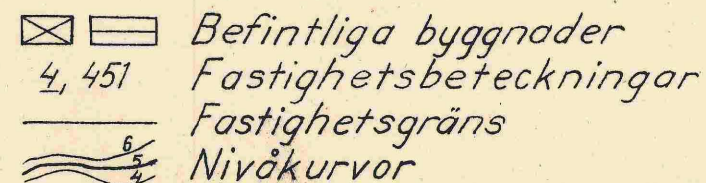 Befintliga byggnader
4, 451 Fastighetsbeteckningar
Fastighetsgräns
6 5 4 Nivåkurvor